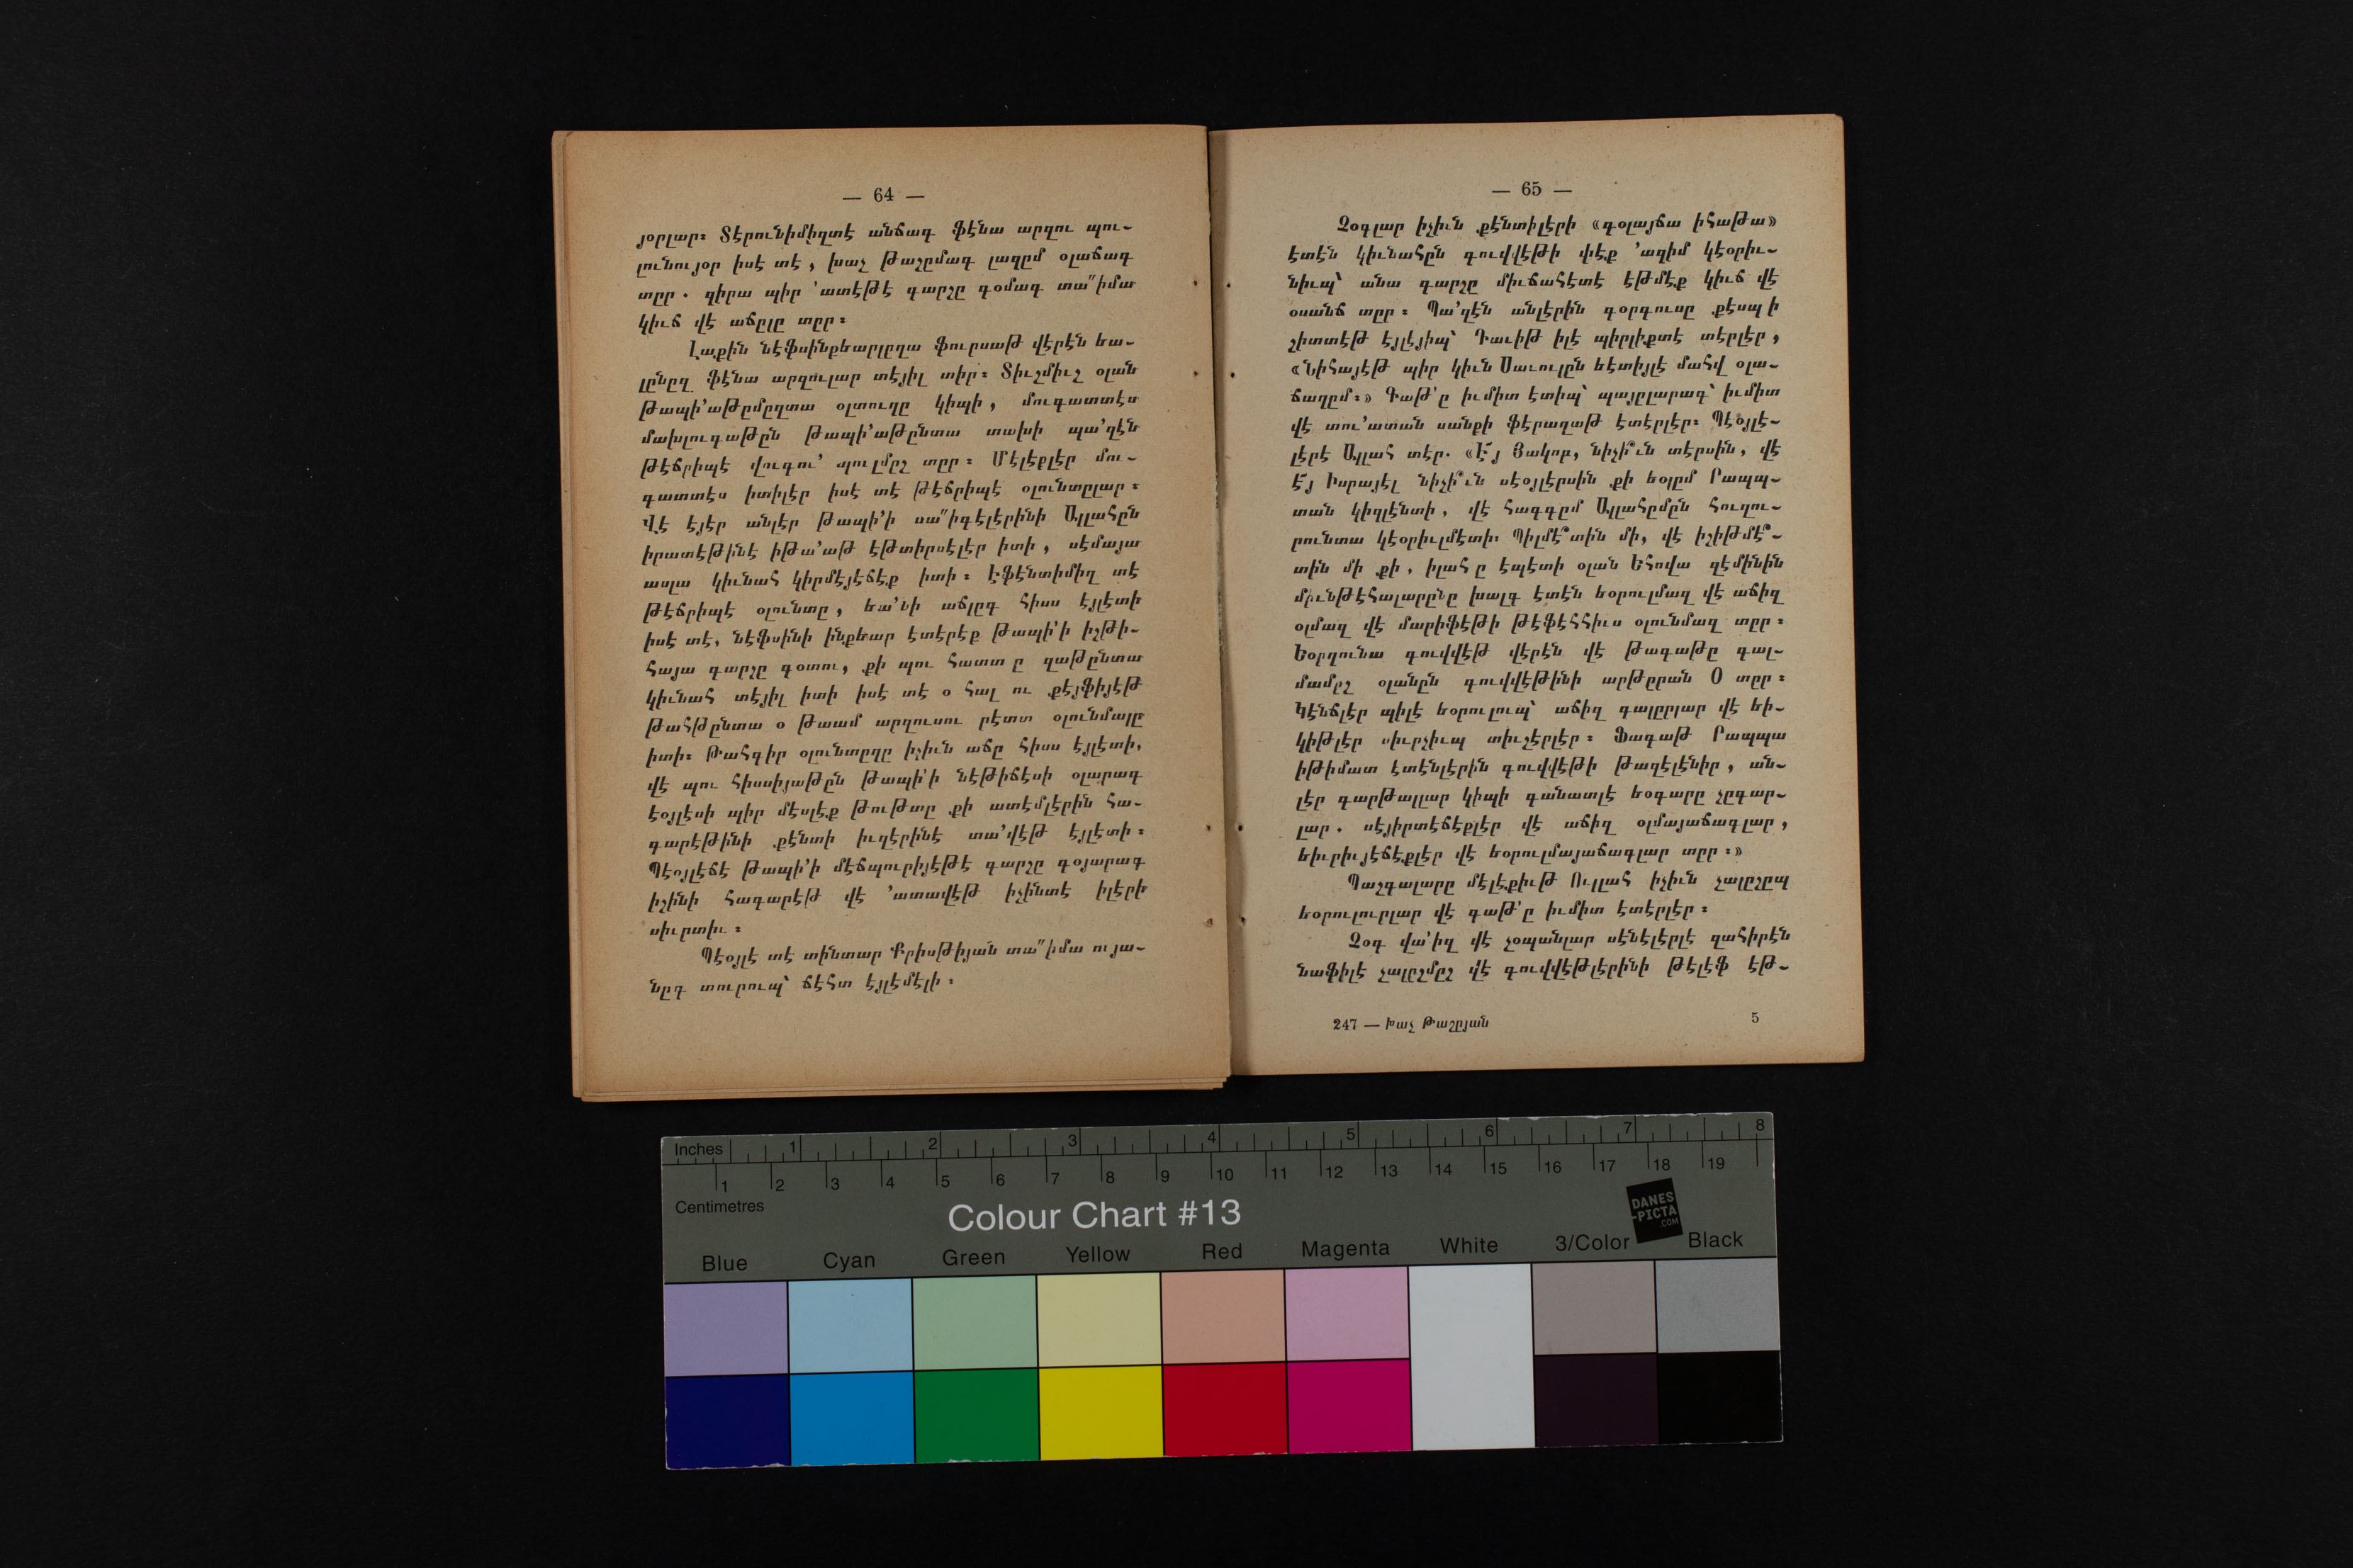 — 64 —
յօրլար։ Տէրունիմիզտէ անճագ ֆէնա արզու պու-
լունույօր իսէ տէ, խաչ թաշըմագ լազըմ օլաճագ
տըր. զիրա պիր ՚ատէթէ գարշը գօմագ տա՞իմա
կիւճ վէ աճըլը տըր։
Լաքին նէֆսինքեարլըղա ֆուրսաթ վէրէն եա-
լընըզ ֆէնա արզուլար տէյիլ տիր։ Տիւշմիւշ օլան
թապի՚աթըմըզտա օլտուղը կիպի, մուգատտէս
մախլուգաթըն թապի՚աթընտա տախի պա՚զէն
թէճրիպէ վուգու՚ պուլմըշ տըր։ Մէլէքլէր մու-
գատտէս իտիլէր իսէ տէ թէճրիպէ օլունտըլար։
Վէ էյէր անլէր թապի՚ի սա՞իգէլէրինի Ալլահըն
իրատէթինէ իթա՚աթ էթտիրսէլէր իտի, սէմայա
ասլա կիւնահ կիրմէյէճէք իտի։ Էֆէնտիմիզ տէ
թէճրիպէ օլունտը, եա՚նի աճլըգ հիսս էյլէտի
իսէ տէ, նէֆսինի ինքեար էտէրէք թապի՚ի իշթի-
հայա գարշը գօտու, քի պու հատտ ը զաթընտա
կիւնահ տէյիլ իտի իսէ տէ օ հալ ու քէյֆիյէթ
թահթընտա օ թաամ արզուսու րէտտ օլունմալը
իտի։ Թահգիր օլունտըղը իչիւն աճը հիսս էյլէտի,
վէ պու հիսսիյաթըն թապի՚ի նէթիճէսի օլարագ
էօյլէսի պիր մէսլէք թութտը քի ատէմլէրին հա-
գարէթինի քէնտի իւզէրինէ տա՚վէթ էյլէտի։
Պէօյլէճէ թապի՚ի մէճպուրիյէթէ գարշը գօյարագ
իշինի հագարէթ վէ ՚ատավէթ իչինտէ իլէրի
սիւրտիւ։
Պէօյլէ տէ տինտար Քրիսթիյան տա՞իմա ույա-
նըգ տուրուպ՝ ճէհտ էյլէմէլի։
— 65 —
Չօգլար իչիւն քէնտիլէրի «գօլայճա իհաթա»
էտէն կիւնահըն գուվվէթի փէք ՚ազիմ կէօրիւ-
նիւպ՝ անա գարշը միւճահէտէ էթմէք կիւճ վէ
օսանճ տըր։ Պա՚զէն անլէրին գօրգուսը քէսպ ի
շիտտէթ էյլէյիպ՝ Դաւիթ իլէ պիրլիքտէ տէրլէր,
«Նիհայէթ պիր կիւն Սաւուլըն եէտիյլէ մահվ օլա-
ճաղըմ։» Գաթ՚ը իւմիտ էտիպ՝ պայըլարագ՝ իւմիտ
վէ տու՚ատան սանքի ֆէրաղաթ էտէրլէր։ Պէօյլէ-
լէրէ Ալլահ տէր. «Է՜յ Յակոբ, նիչի՞ւն տէրսին, վէ
է՜յ Իսրայէլ նիչի՞ւն սէօյլէրսին քի եօլըմ Րապպ-
տան կիզլէնտի, վէ հագգըմ Ալլահըմըն հուզու-
րունտա կէօրիւլմէտի։ Պիլմէ՞տին մի, վէ իշիթմէ՞-
տին մի քի, իլահ ը էպէտի օլան Եհովա զէմինին
միւնթէհալարընը խալգ էտէն եօրուլմազ վէ աճիզ
օլմազ վէ մարիֆէթի թէֆէհհիւս օլունմազ տըր։
Եօրղունա գուվվէթ վէրէն վէ թագաթը գալ-
մամըշ օլանըն գուվվէթինի արթըրան Օ տըր։
Կէնճլէր պիլէ եօրուլուպ՝ աճիզ գալըրլար վէ եի-
կիթլէր սիւրչիւպ տիւշէրլէր։ Ֆագաթ Րապպա
իթիմատ էտէնլէրին գուվվէթի թազէլէնիր, ան-
լէր գարթալլար կիպի գանատլէ եօգարը չըգար-
լար. սէյիրտէճէքլէր վէ աճիզ օլմայաճագլար,
եիւրիւյէճէքլէր վէ եօրուլմայաճագլար տըր։»
Պաշգալարը մէլէքիւթ Ուլլահ իչիւն չալըշըպ
եօրուլուրլար վէ գաթ՚ը իւմիտ էտէրլէր։
Չօգ վա՚իզ վէ չօպանլար սէնէլէրլէ զահիրէն
նաֆիլէ չալըշմըշ վէ գուվվէթլէրինի թէլէֆ էթ-
247 — Խաչ Թաշըյան 5
Inches 1 2 3 4 5 6 7 8
1 2 3 4 5 6 7 8 9 10 11 12 13 14 15 16 17 18 19
Centimetres
Colour Chart #13
DANES
-PICTA
.COM
Blue Cyan Green Yellow Red Magenta White 3/Color Black